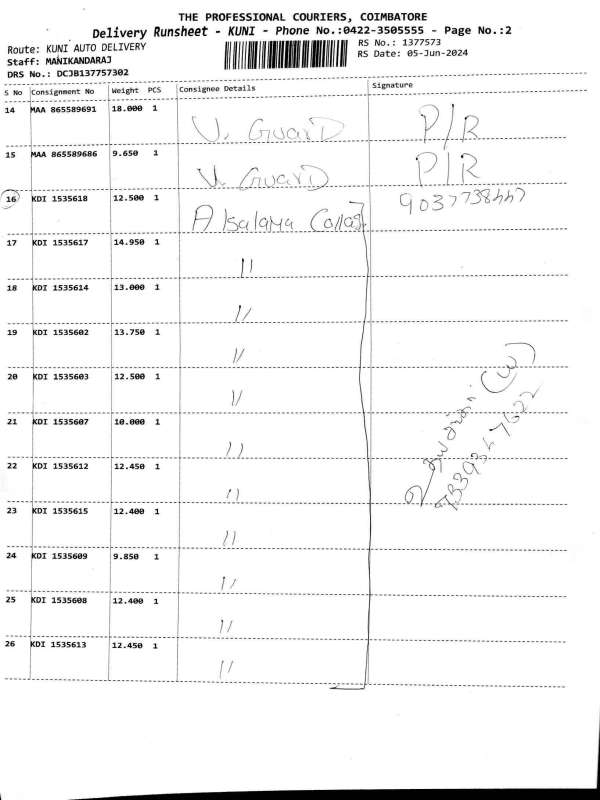 THE PROFESSIONAL COURIERS, COIMBATORE
Delivery Runsheet - KUNI - Phone No.:0422-3505555 - Page No.:2
Route: KUNI AUTO DELIVERY
RS No.: 1377573
Staff: MANIKANDARAJ
RS Date: 05-Jun-2024
DRS No.: DCJB137757302
S No Consignment No Weight PCS Consignee Details Signature
14 MAA 865589691 18.000 1 V. Guard P/R
15 MAA 865589686 9.650 1 V. Guard P/R
16 KDI 1535618 12.500 1 Alsalama
17 KDI 1535617 14.950 1 "
18 KDI 1535614 13.000 1 "
19 KDI 1535602 13.750 1 "
20 KDI 1535603 12.500 1 "
21 KDI 1535607 10.000 1 "
22 KDI 1535612 12.450 1 "
23 KDI 1535615 12.400 1 "
24 KDI 1535609 9.850 1 "
25 KDI 1535608 12.400 1 "
26 KDI 1535613 12.450 1 "